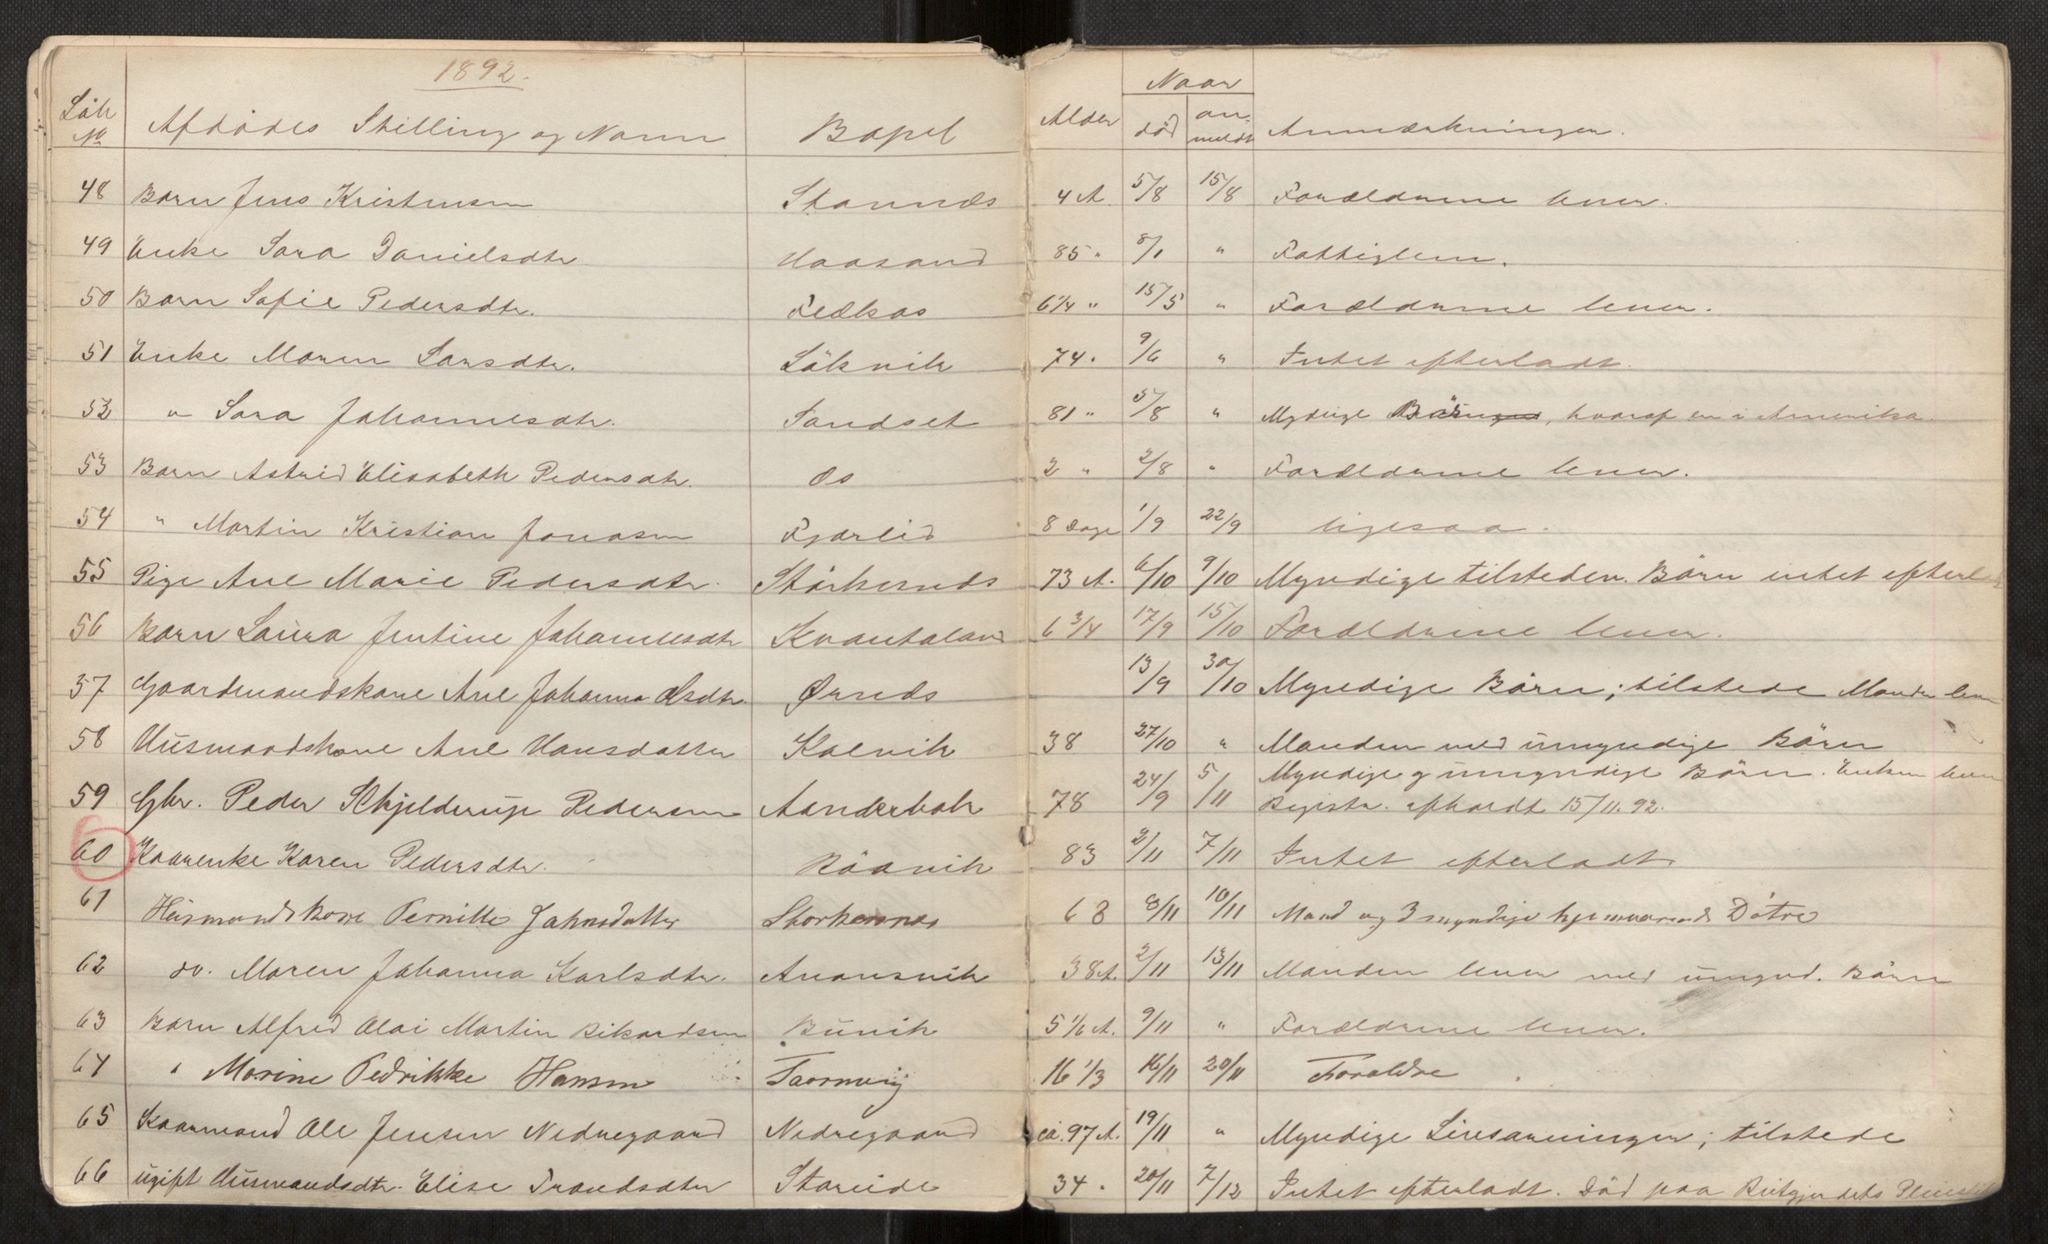 1892.
Løb No Afdødes Stilling og Navn Bopel Alder Naar død anmeldt Anmærkninger.
48 Barn Jens Kristensen Stamnes 4 A. 5/8 15/8 Forældrene lever.
49 Enke Sara Danielsdtr Haasand 85 " 8/1 " Fattiglem.
50 Barn Sofie Pedersdtr. 6 1/4 " 15/5 " Forældrene lever.
51 Enke Maren Larsdtr. Løkvik 74 " 9/6 " Intet efterladt.
52 " Sara Johannesdtr. Sandset 81 " 5/8 " Myndige Børn, hvoraf en i Amerika
53 Barn Astrid Elisabeth Pedersdtr. Os 2 " 2/8 " Forældrene lever.
54 " Martin Kristian Jonasen Fjærlid 8 Dage 1/9 22/9 ligesaa.
55 Pige Ane Marie Pedersdtr. Storkesnes 73 A. 6/10 9/10 Myndige tilsteden. Børn intet efterladt
56 Barn Laura Jentine Johannesdtr Kvantoland 6 3/4 17/9 15/10 Forældrene lever.
57 Gaardmandskone Ane Johanna Olsdtr. Ørnes 13/9 30/10 Myndige Børn; tilstede Manden lever
58 Husmandskone Ane Hansdatter Kalvik 38 27/10 " Manden med umyndige Børn
59 Gbr. Peder Schjelderup Pedersen Aanderbak 78 24/9 5/11 Myndige og umyndige Børn. Enken lever
Registr. afholdt 15/11.92.
60 Kaarenke Karen Pedersdtr. Råavik 83 2/11 7/11 Intet efterladt
61 Husmandskone Pernille Jahnsdatter Storkesnes 68 8/11 10/11 Mand og 3 myndige hjemmeværende Døtre
62 do. Maren Johanna Karlsdtr. Anansvik 38 A. 2/11 13/11 Manden lever med umynd. Børn
63 Barn Alfred Olai Martin Rikardsen Buvik 5 1/6 A. 9/11 " Forældrene lever.
64 " Marine Pedrikke Hansen Taornvig 16 1/3 16/11 20/11 Forældre
65 Kaarmand Ole Jensen Nedregaard Nedregaard ca. 97 A. 19/11 " Myndige Livsarvinger; tilstede
66 ugift Husmandsdtr. Elise Trondsdtr Storeide 34 " 20/11 7/12 Intet efterladt. Død paa Rødgjerdets